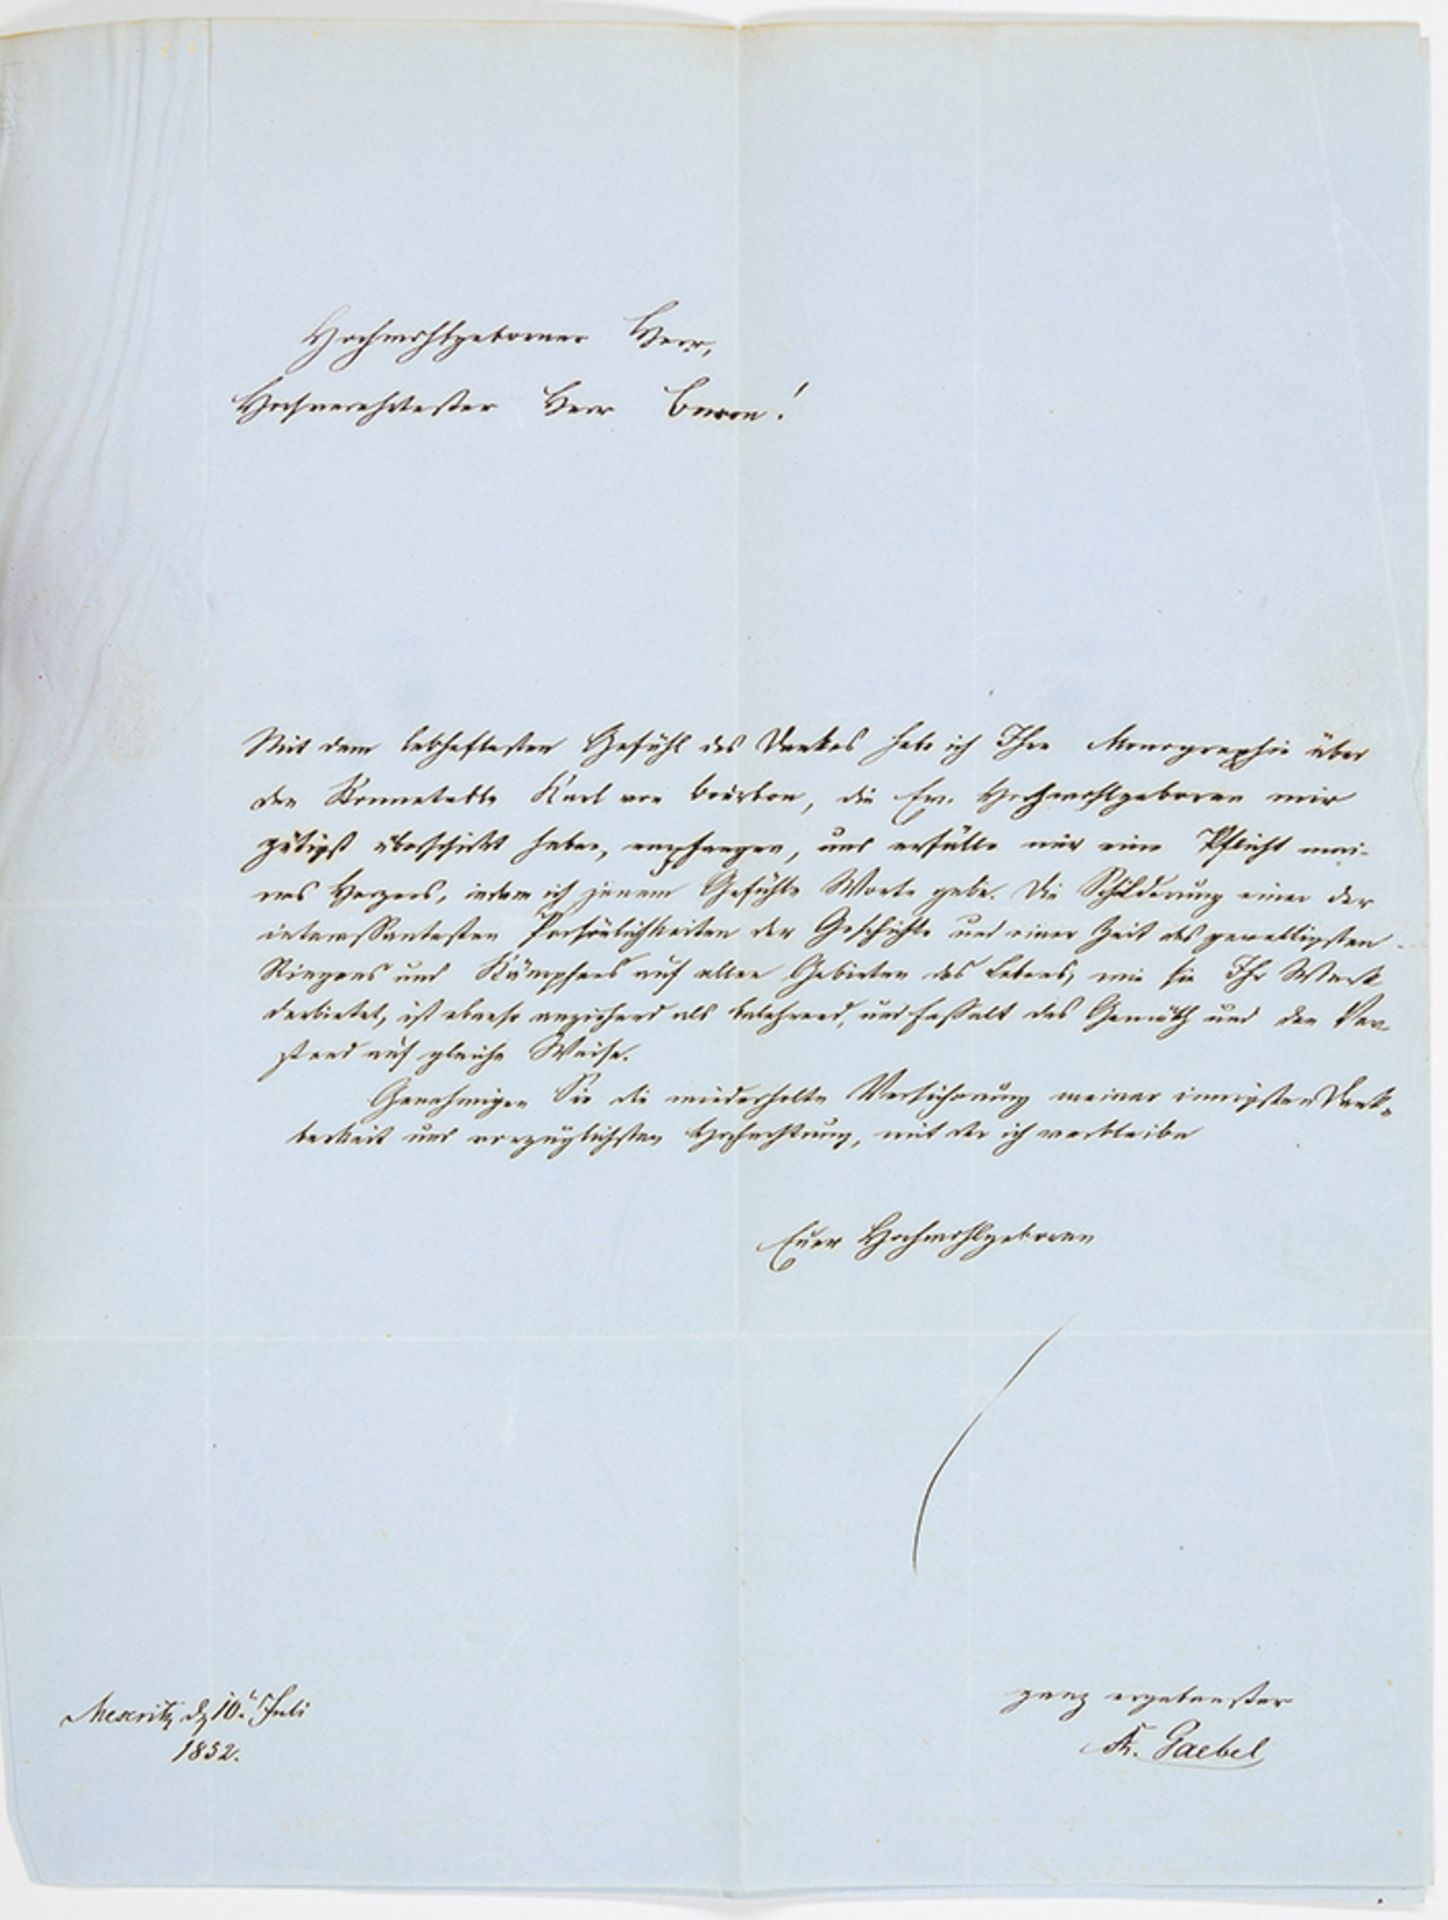 Hochwohlgeborner Herr,
Hochverehrtester Herr Baron!
Mit dem lebhaftesten Gefühl des Dankes habe ich Ihre Monographie über
den Konnetable Karl von Bourbon, die Ew. Hochwohlgeboren mir
gütigst überschickt haben, empfangen, und erfülle nur eine Pflicht mei-
nes Herzens, indem ich jenem Gefühle Worte gebe. Die Schilderung einer der
interessantesten Persönlichkeiten der Geschichte und einer Zeit des gewaltigsten
Ringens und Kämpfens auf allen Gebieten des Lebens, wie sie Ihr Werk
darbietet, ist ebenso anziehend als belehrend, und fesselt das Gemüth und den Ver-
stand auf gleiche Weise.
Genehmigen Sie die wiederholte Versicherung meiner innigsten Dank-
barkeit und vorzüglichsten Hochachtung, mit der ich verbleibe
Euer Hochwohlgeboren
ganz ergebenster
Th. Gaebel
Meseritz d. 10. Juli
1852.